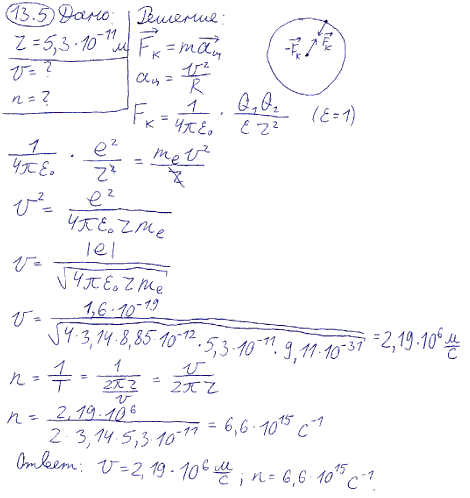 13.5 Дано: Решение:
r = 5,3·10⁻¹¹ м
v = ?
n = ?
F⃗к = ma⃗ц
aц = v²/R
Fк = 1/(4πε₀) · Q₁Q₂/(εr²) (ε=1)
-F⃗к F⃗к
1/(4πε₀) · e²/r² = mₑv²/r
v² = e²/(4πε₀rmₑ)
v = |e|/√(4πε₀rmₑ)
v = 1,6·10⁻¹⁹/√(4·3,14·8,85·10⁻¹²·5,3·10⁻¹¹·9,11·10⁻³¹) = 2,19·10⁶ м/с
n = 1/T = 1/(2πr/v) = v/(2πr)
n = 2,19·10⁶/(2·3,14·5,3·10⁻¹¹) = 6,6·10¹⁵ с⁻¹
Ответ: v = 2,19·10⁶ м/с; n = 6,6·10¹⁵ с⁻¹.